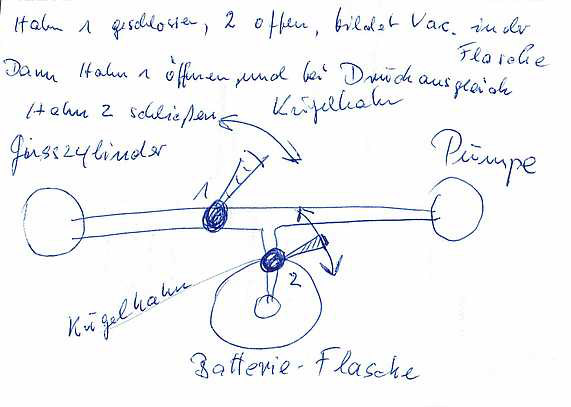 Hahn 1 geschlossen, 2 offen, bildet Vac. in der
Flasche
Dann Hahn 1 öffnen, und bei Druckausgleich
Hahn 2 schließen
Kugelhahn
Giesszylinder
Pumpe
1
2
Kugelhahn
Batterie-Flasche